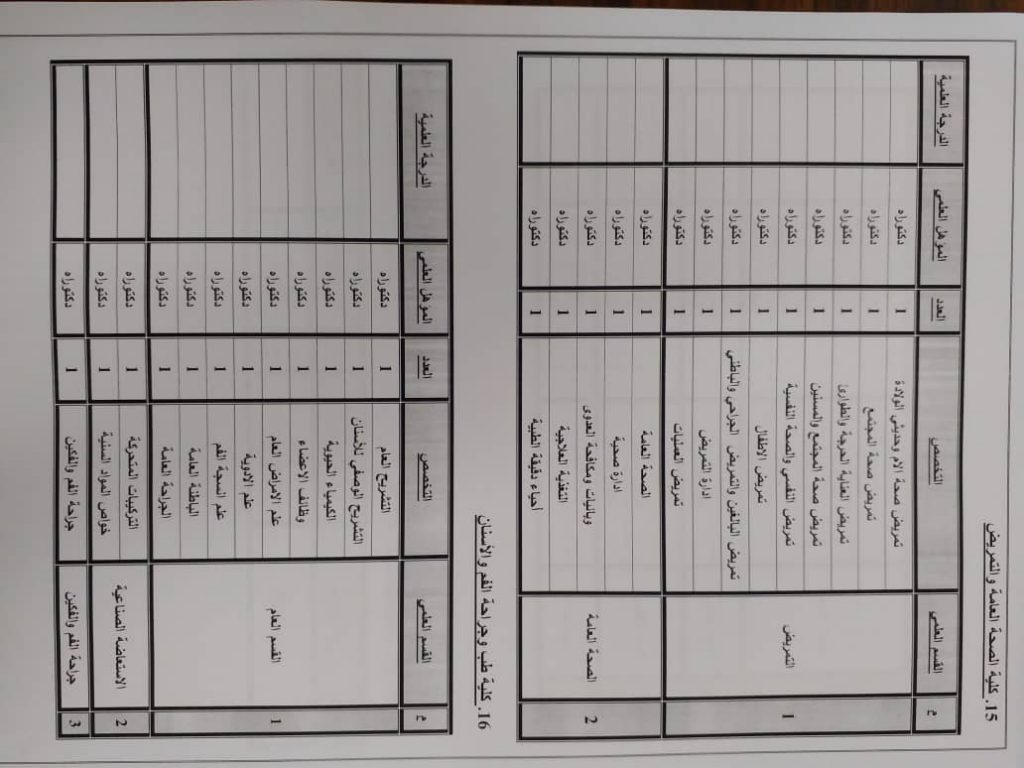 15. كلية الصحة العامة والتمريض
م القسم العلمي التخصص العدد المؤهل العلمي الدرجة العلمية
1 التمريض تمريض صحة الام وحديثي الولادة 1 دكتوراه
تمريض صحة المجتمع 1 دكتوراه
تمريض العناية الحرجة والطوارئ 1 دكتوراه
تمريض صحة المجتمع والمسنين 1 دكتوراه
تمريض النفسي والصحة النفسية 1 دكتوراه
تمريض الاطفال 1 دكتوراه
تمريض البالغين والتمريض الجراحي والباطني 1 دكتوراه
ادارة التمريض 1 دكتوراه
تمريض العمليات 1 دكتوراه
2 الصحة العامة الصحة العامة 1 دكتوراه
ادارة صحية 1 دكتوراه
وبائيات ومكافحة العدوى 1 دكتوراه
التغذية العلاجية 1 دكتوراه
أحياء دقيقة الطبية 1 دكتوراه
16. كلية طب وجراحة الفم والأسنان
م القسم العلمي التخصص العدد المؤهل العلمي الدرجة العلمية
1 القسم العام التشريح العام 1 دكتوراه
التشريح الوصفي للأسنان 1 دكتوراه
الكيمياء الحيوية 1 دكتوراه
وظائف الاعضاء 1 دكتوراه
علم الامراض العام 1 دكتوراه
علم الادوية 1 دكتوراه
علم انسجة الفم 1 دكتوراه
الباطنة العامة 1 دكتوراه
الجراحة العامة 1 دكتوراه
2 الاستعاضة الصناعية التركيبات المتحركة 1 دكتوراه
خواص المواد السنية 1 دكتوراه
3 جراحة الفم والفكين جراحة الفم والفكين 1 دكتوراه